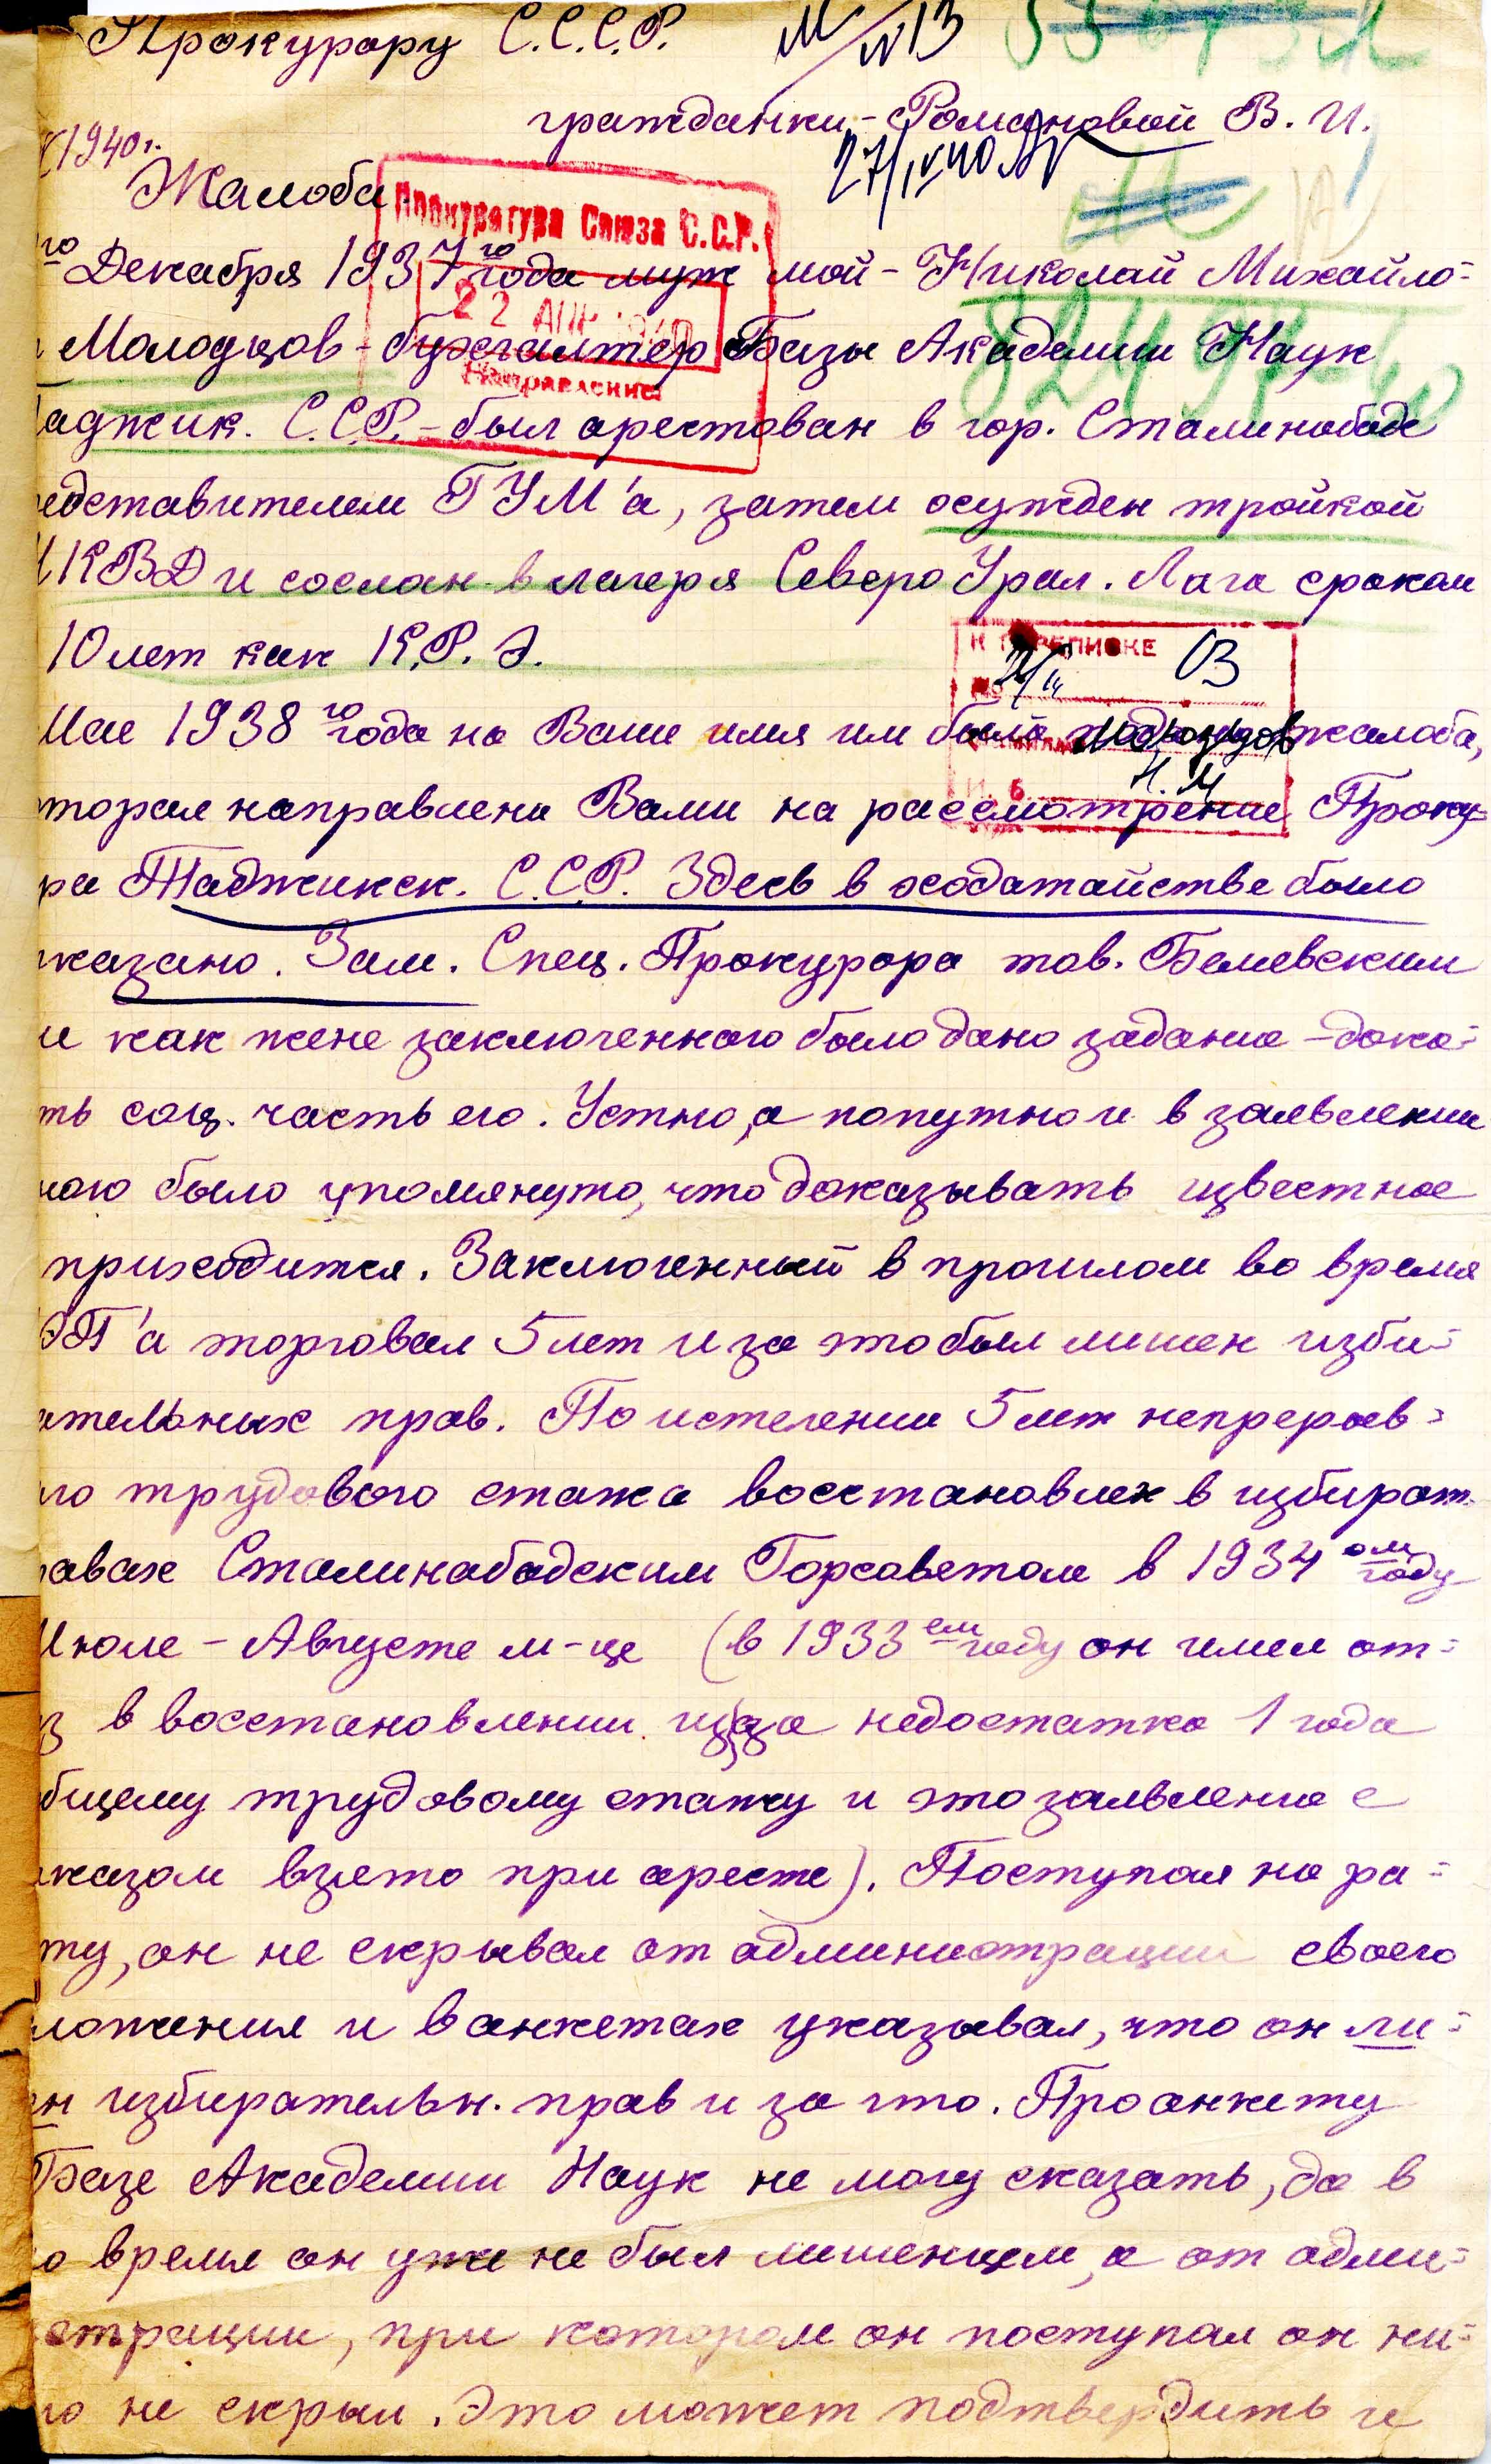 Прокурору С.С.С.Р.
гражданки - Романовой В. И.
1940 г.
27/IV 40
Жалоба
Прокуратура Союза С.С.Р.
22 АПР 1940
Направление
го Декабря 1937го года муж мой - Николай Михайло=
Молодцов - бухгалтер Базы Академии Наук
аджик. С.С.Р. - был арестован в гор. Сталинабаде
едставителем ГУМ'а, затем осужден тройкой
НКВД и сослан в лагеря Северо Урал. Лага сроком
10 лет как К.Р.Э.
К ПЕРЕПИСКЕ
Молодцов
Н. М
Мае 1938го года на Ваше имя им была подана жалоба,
оторая направлена Вами на рассмотрение Проку=
ра Таджикск. С.С.Р. Здесь в ходатайстве было
казано. Зам. Спец. Прокурора тов. Белевским
е как жене заключенного было дано задание - дока=
ть соц. часть его. Устно, а попутно и в заявлении
ною было упомянуто, что доказывать известное
приходится. Заключенный в прошлом во время
ЭП'а торговал 5 лет и за это был лишен изби=
ательных прав. По истечении 5 лет непрерыв=
го трудового стажа восстановлен в избират.
авах Сталинабадским Горсоветом в 1934ом году
Июле - Августе м-це (в 1933ем году он имел от=
з в восстановлении из за недостатка 1 года
бщему трудовому стажу и это заявление с
казом взято при аресте). Поступая на ра=
ту, он не скрывал от администрации своего
ложения и в анкетах указывал, что он ли=
ен избирательн. прав и за что. Про анкету
Базе Академии Наук не могу сказать, да в
о время он уже не был лишенцем, а от адми=
страции, при котором он поступал он ни=
го не скрыл. Это может подтвердить и